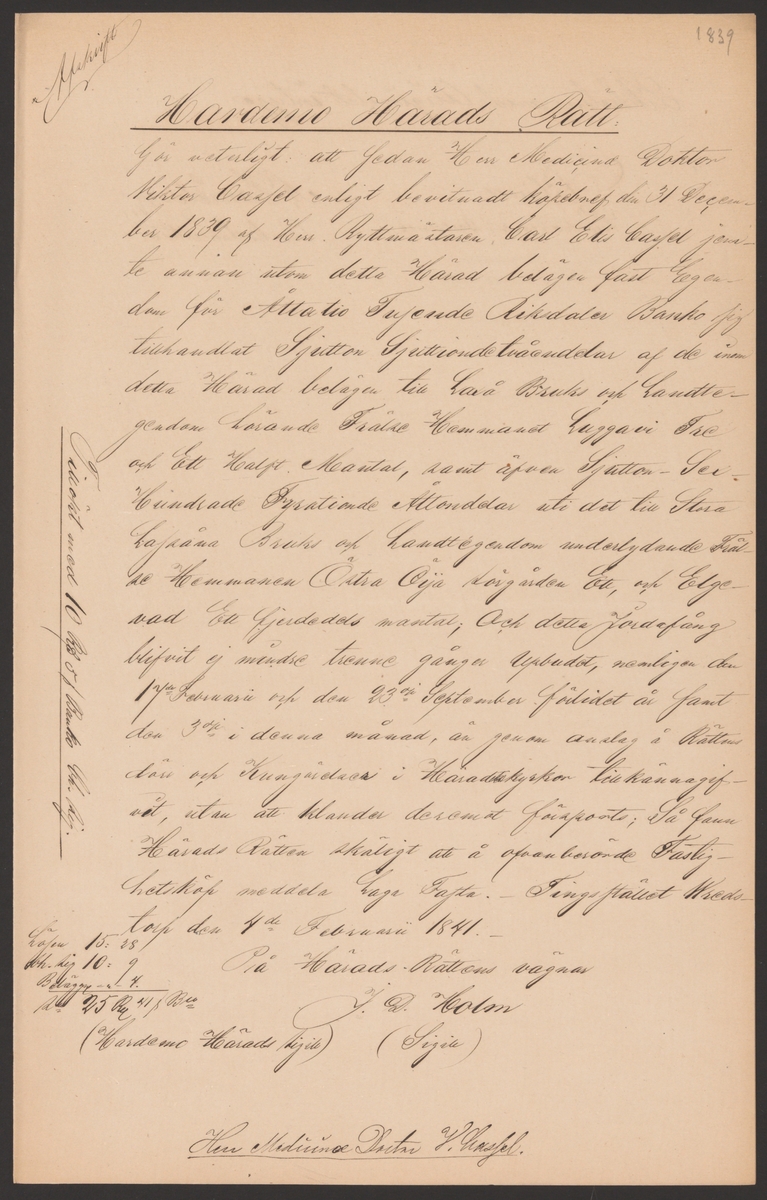 1839
Afskrift
Hardemo Härads Rätt:
Gör veterligt: att sedan Herr Medicinæ Doktor
Viktor Cassel enligt bevitnadt köpebref den 31 Decem-
ber 1839 af Herr Ryttmästaren Carl Elis Cassel jem-
te annan utom detta Härad belägen fast Egen-
dom för Åttatio Tusende Rikdaler Banko sig
tillhandlat Sjutton Sjuttiondetvåendelar af de inom
detta Härad belägen till Laxå Bruks och Landte-
gendom hörande Frälse Hemmanet Luggavi Tre
och Ett Halft Mantal, samt äfven Sjutton-Sex-
Hundrade Fyrationde Åttondelar uti det till Stora
Lassåna Bruks och Landtegendom underlydande Fräl-
se Hemmanen Östra Öija Sörgården Ett, och Elge-
vad Ett fjerdedels mantal; Och detta Jordafång
blifvit ej mindre trenne gånger upbudet, nemligen den
17de Februarii och den 23dje September förlidet år samt
den 3dje i denna månad, än genom anslag å Rättens
dörr och Kungörelser i Häradskyrkor tillkännagif-
vet, utan att klander deremot försports; Så fann
Härads Rätten skäligt att å ofvanberörde Fastig-
hetsköp meddela Laga Fasta. - Tingsstället Kreds-
torp den 4de Februarii 1841. -
På Härads-Rättens vägnar
J. D. Holm
(Hardemo Härads Sigill) (Sigill)
Lösen 15: 28
Ch. Sig 10: 9
Beläggn - " - 4.
S:a 25 Rd 41 s Bco
med 10 Rd 5 s Banko Ch. Sig.
Herr Medicinæ Doctor V. Cassel.